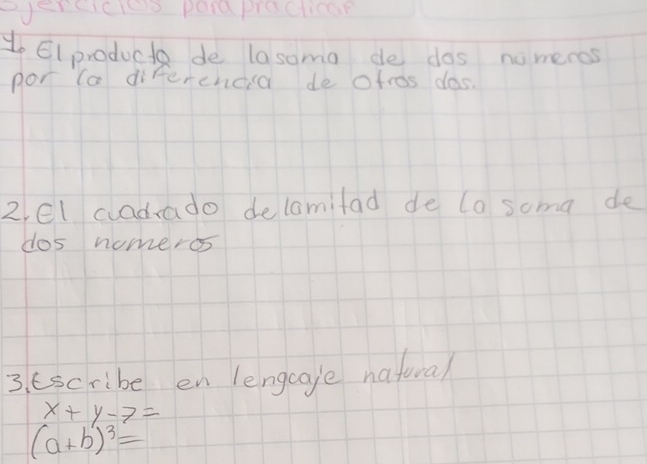 Ejercicios para practicar
1. El producto de la soma de dos números
por la diferencia de otros dos.
2. El cuadrado de la mitad de la soma de
dos numeros
3. Escribe en lengcaje natural
x + y - 7 =
(a+b)³ =